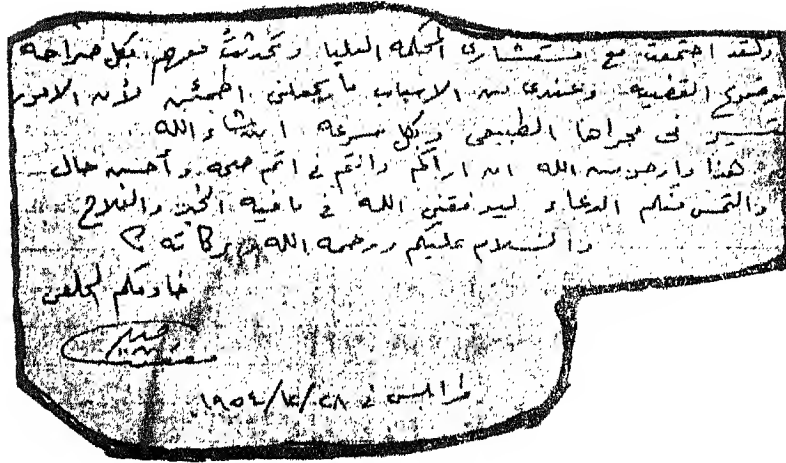 ولقد اجتمعت مع مستشارى المحكمه العليا وتحدثت معهم بكل صراحه
موضوع القضيه وعندى من الاسباب ما يجعلنى اطمئن لأن الامور
تسير فى مجراها الطبيعى وبكل سرعه انشاء الله
هذا وارجو من الله ان اراكم وانتم فى اتم صحه وأحسن حال
والتمس منكم الدعاء ليوفقنى الله فى ما فيه الخير والفلاح
والسلام عليكم ورحمه الله وبركاته
خادمكم المخلص
طرابلس فى ٢٨/ /١٩٥٤